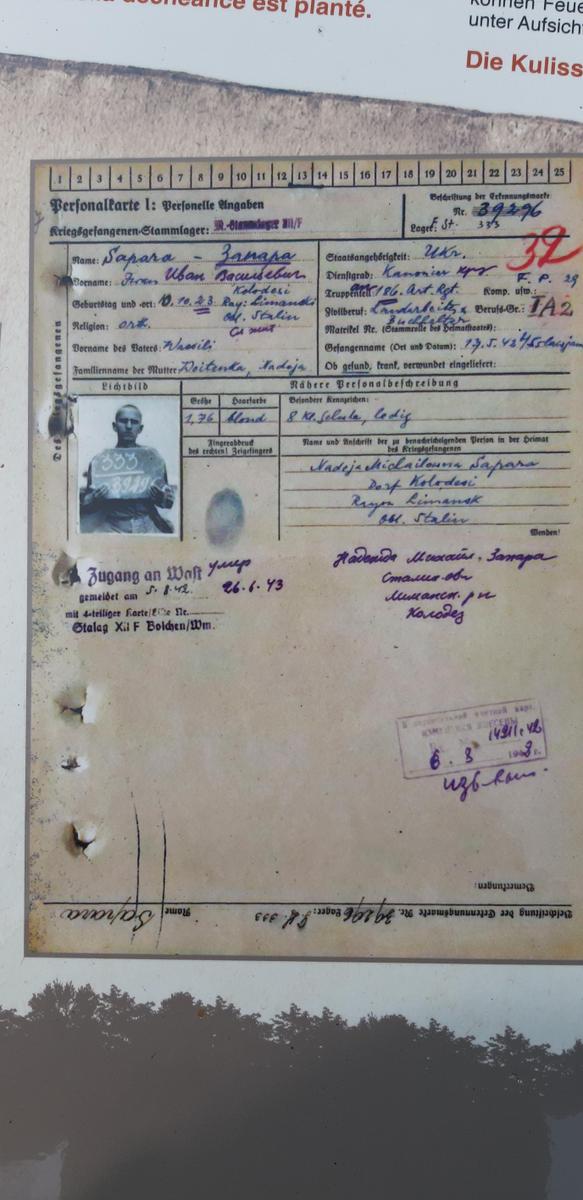 déchéance est planté.
können Feue
unter Aufsicht
Die Kuliss
1 2 3 4 5 6 7 8 9 10 11 12 13 14 15 16 17 18 19 20 21 22 23 24 25
Personalkarte I: Personelle Angaben
Beschriftung der Erkennungsmarke
Nr. 39296
Kriegsgefangenen-Stammlager: M.-Stammlager XII/F
Lager: F. St. 333
32
Des Kriegsgefangenen
Name: Sapara - Запара
Vorname: Iwan Иван Васильевич
Kolodesi
Geburtstag und -ort: 10.10.23 Ray: Limanski
Obl. Stalin
Religion: orth.
Vorname des Vaters: Wasili
Familienname der Mutter: Nadeja
Staatsangehörigkeit: Ukr.
Dienstgrad: Kanonier
Truppenteil: 186. Art. Rgt. Komp. usw.:
Zivilberuf: Landarbeiter Berufs-Gr.: IA2
Buchhalter
Matrikel Nr. (Stammrolle des Heimatstaates):
Gefangenname (Ort und Datum): 17.5.42
Ob gesund, krank, verwundet eingeliefert:
Lichtbild
Nähere Personalbeschreibung
Größe Haarfarbe Besondere Kennzeichen:
1,76 blond 8 Kl. Schule, ledig
Fingerabdruck
des rechten! Zeigefingers
Name und Anschrift der zu benachrichtigenden Person in der Heimat
des Kriegsgefangenen
333
39296
Nadeja Michailowna Sapara
Dorf Kolodesi
Rayon Limansk
Obl. Stalin
Wenden!
Zugang an Wast умер
gemeldet am 5.8.42. 26.6.43
mit 4-teiliger Karte/Liste Nr.
Stalag XII F Bolchen/Wm.
Надежда Михайл. Запара
Сталин обл
Лиманск. р-н
Колодез
6. 3 1943 г.
Bemerkungen:
Beschriftung der Erkennungsmarke Nr. 39296 Lager: 333 Name Sapara